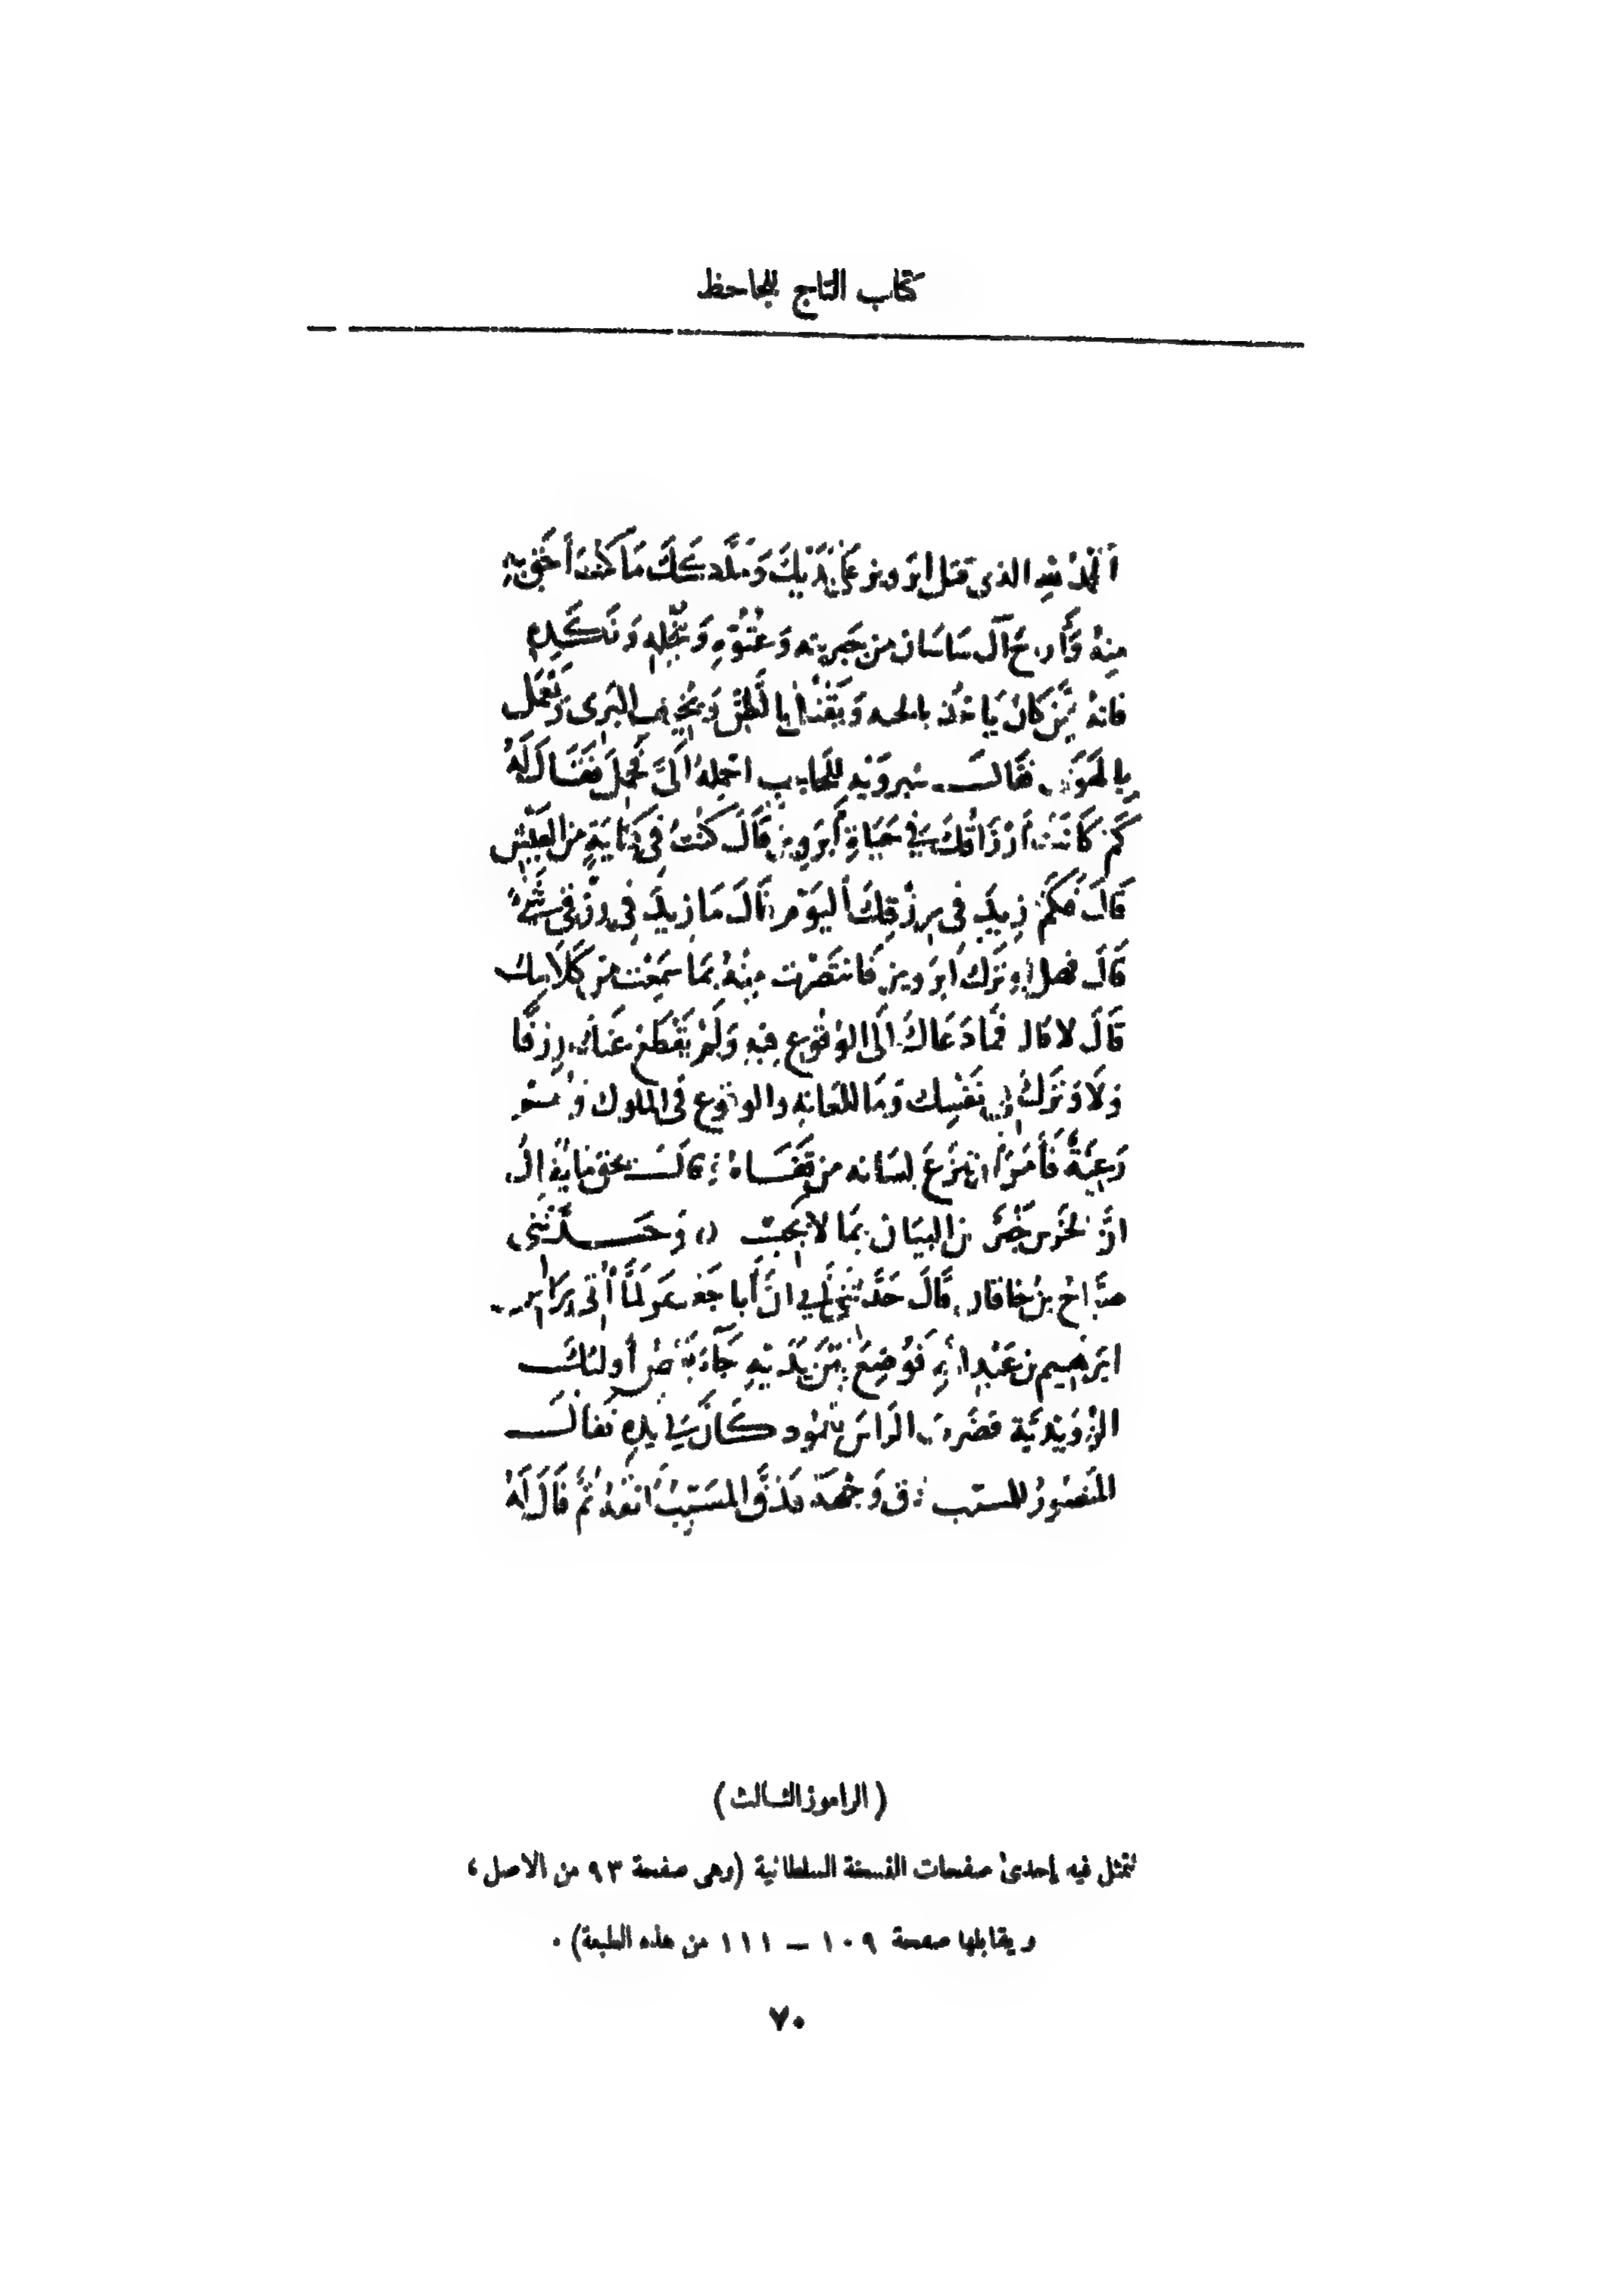 كتاب التاج للجاحظ
اَلحمْدُ لِلّهِ الذى قتل ابَرويز عَلَى يَدَيْكَ وَمَلَّكَكَ مَا كُنْتَ أَحَقَّ بِهِ
مِنهُ وَأَراحَ آلَ سَاسَان من جَبريته وَعُتُوّهِ وَبُخْلِهِ وَنَكَدِهِ
فانهُ مِمَّن كَانَ يَاخُذ بالحبه وَيَقْتُل بِالظَّنِّ وَيُخِيفُ البَرِى وَيَعْمَل
بِالهَوَى فقَالَ شيرويْهِ للحَاجِبِ احْمِلهُ اِلَىَّ فَحُمِلَ فَقَالَ لَهُ
كَم كَانَت أَرْزَاقُكَ فِي حَيَاةِ أَبَرويز قَالَ كُنْتُ فِى كِفَايَةٍ مِنَ العَيْشِ
قَالَ فَكَمْ زِيدَ فى رِزْقِكَ اليَوْم قَالَ مَا زِيدَ فِى رِزْقِى شَىْءٌ
قَالَ فهل وتَرَكَ ابَرويز فَانتَصَرْت مِنْهُ بِمَا سَمِعْت مِن كَلَامِكَ
قَالَ لا قال فَمَا دَعَاكَ اِلَى الوُقُوعِ فِيهِ وَلَمْ يَقْطَعْ عَنكَ رِزقًا
وَلَا وَتَرَكَ فِى نَفْسِك وَمَا للعَامّه والوقوع فى الملوك وهُمْ
رَعِيَّةٌ فَأَمَرَ ان يُنزَعَ لِسَانه من قَفَاهُ وقَالَ بحق ما يُقَالُ
انَّ الخَرَس خَيْرٌ من البَيَان بِمَا لا يَجِب وَحَدَّثَنِى
صَبَّاحُ بنُ خَاقَان قَالَ حَدَّثَنِى أَبِي انَّ أَبَا جَعْفَر لَمَّا أُتِىَ بِرَاس
ابرَهيم بن عَبْدِ اللهِ فَوُضِعَ بَيْنَ يَدَيْهِ جَاءَ بَعْضُ أُولئكَ
الرَّوَيْدِيَّة فضَرَبَ الرَاسَ بعَمُود كَانَ في يَدِهِ فَقَالَ
المَنصُورُ للمسيّب دُقَّ وَجْهَهُ فَدَقَّ المُسَيّبُ انفَهُ ثُمَّ قَالَ لَهُ
(الراموز الثالث)
تتمثل فيه إحدىٰ صفحات النسخة السلطانية (وهى صفحة ٩٣ من الاصل ؛
ويقابلها صفحة ١٠٩ — ١١١ من هذه الطبعة) ٠
٧٠